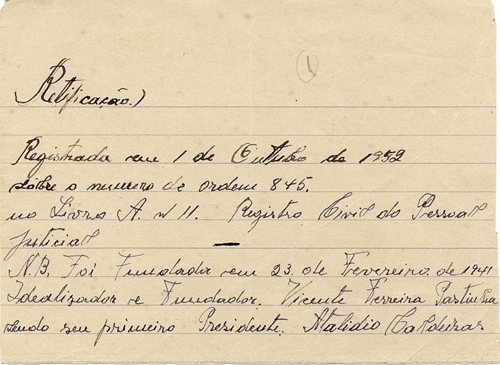 1
Retificação.)
Registrada em 1 de Outubro de 1952
sobre o numero de ordem 845.
no Livro A. nº 11. Registro Civil do Pessoal
Juticial
N.B. Foi Fundador em 23 de Fevereiro de 1941
Idealizador e Fundador. Vicente Ferreira Pastinha
sendo seu primeiro Presidente. Atalidio Caldeiras